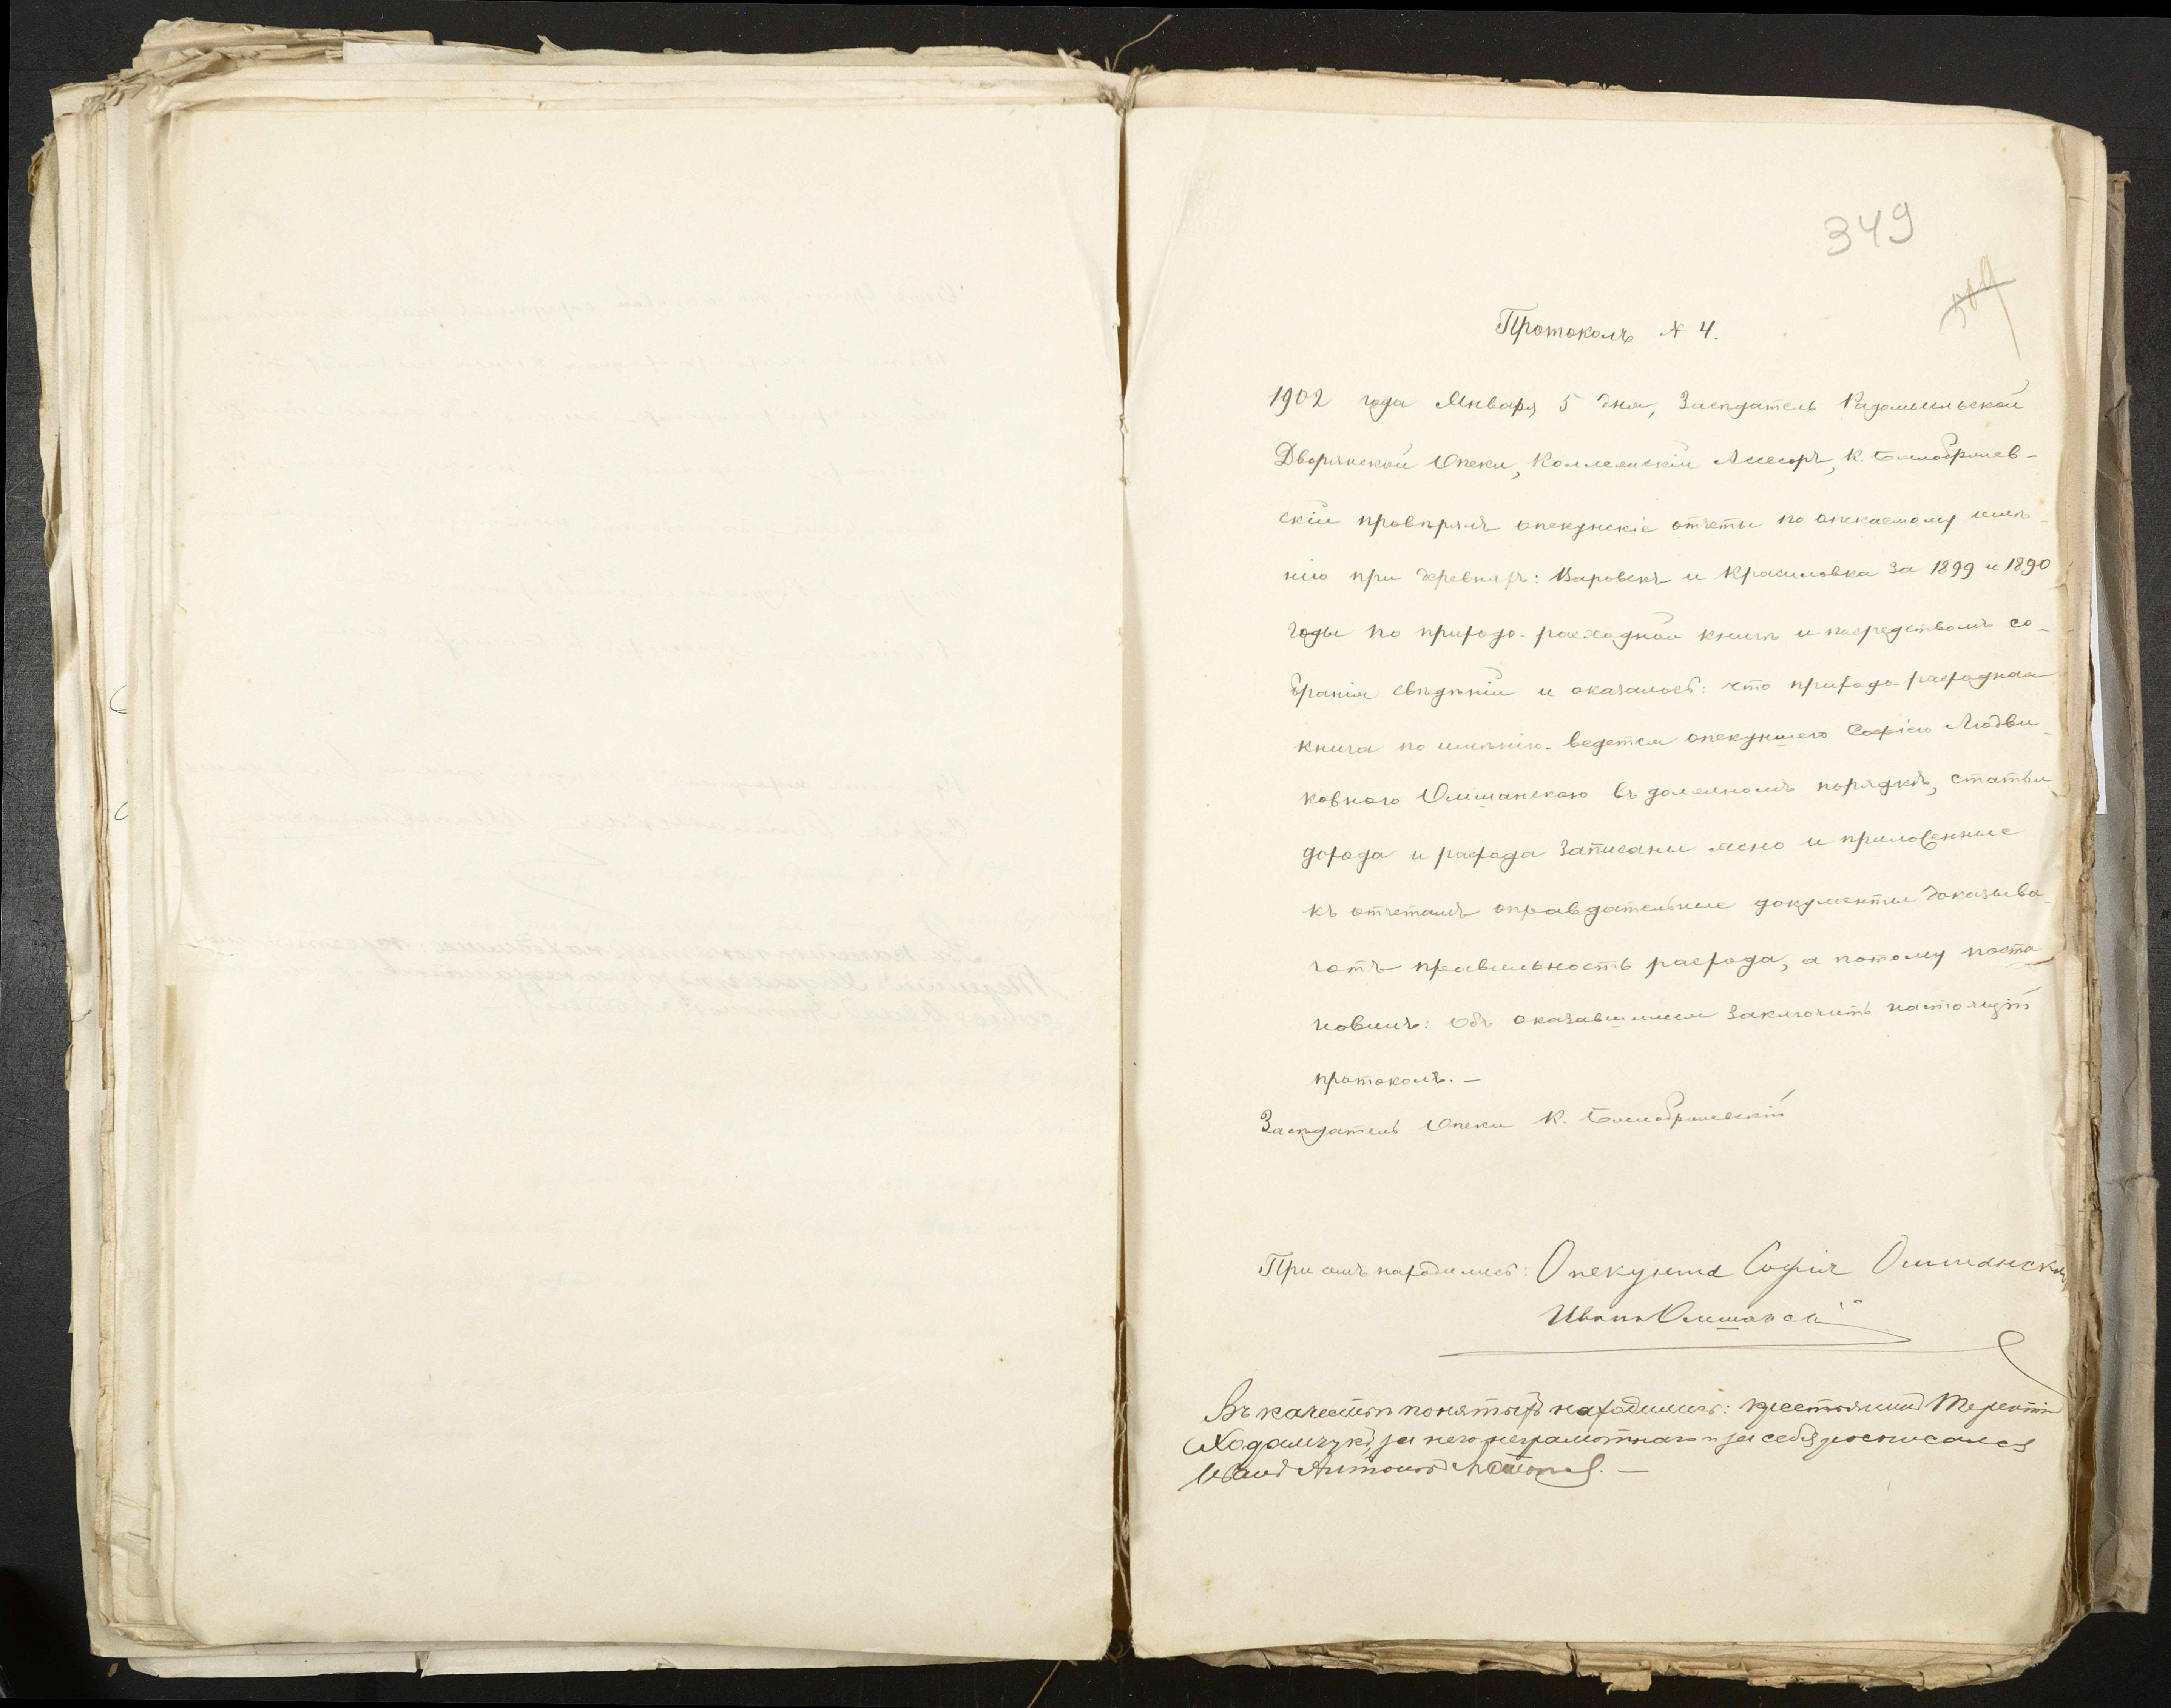 349
Протоколъ № 4.
1902 года Января 5 дня, Засѣдатель Радомысльской
Дворянской Опеки, Коллежскій Асесоръ, К.
скій провѣрялъ опекунскіе отчеты по опекаемому имѣ-
нію при деревняхъ: Варовскъ и Красиловка за 1899 и 1890
годы по приходо-расходной книгѣ и посредствомъ со-
бранія свѣдѣній и оказалось: что приходо-расходная
книга по имѣнію ведется опекуншею Софіею Людви-
ковною Олишанскою въ должномъ порядкѣ, статьи
дохода и расхода записаны ясно и приложенные
къ отчетамъ оправдательные документы доказыва-
ютъ правильность расхода, а потому поста-
новилъ: объ оказавшимся заключить настоящій
протоколъ. —
Засѣдатель Опеки К.
При семъ находились: Опекунша Софія Олишанская
Иванъ Олишанскій
Въ качествѣ понятыхъ находились: крестьянинъ Терентій
Ходамчукъ, за него неграмотнаго и за себя росписался
Иванъ Антоновъ